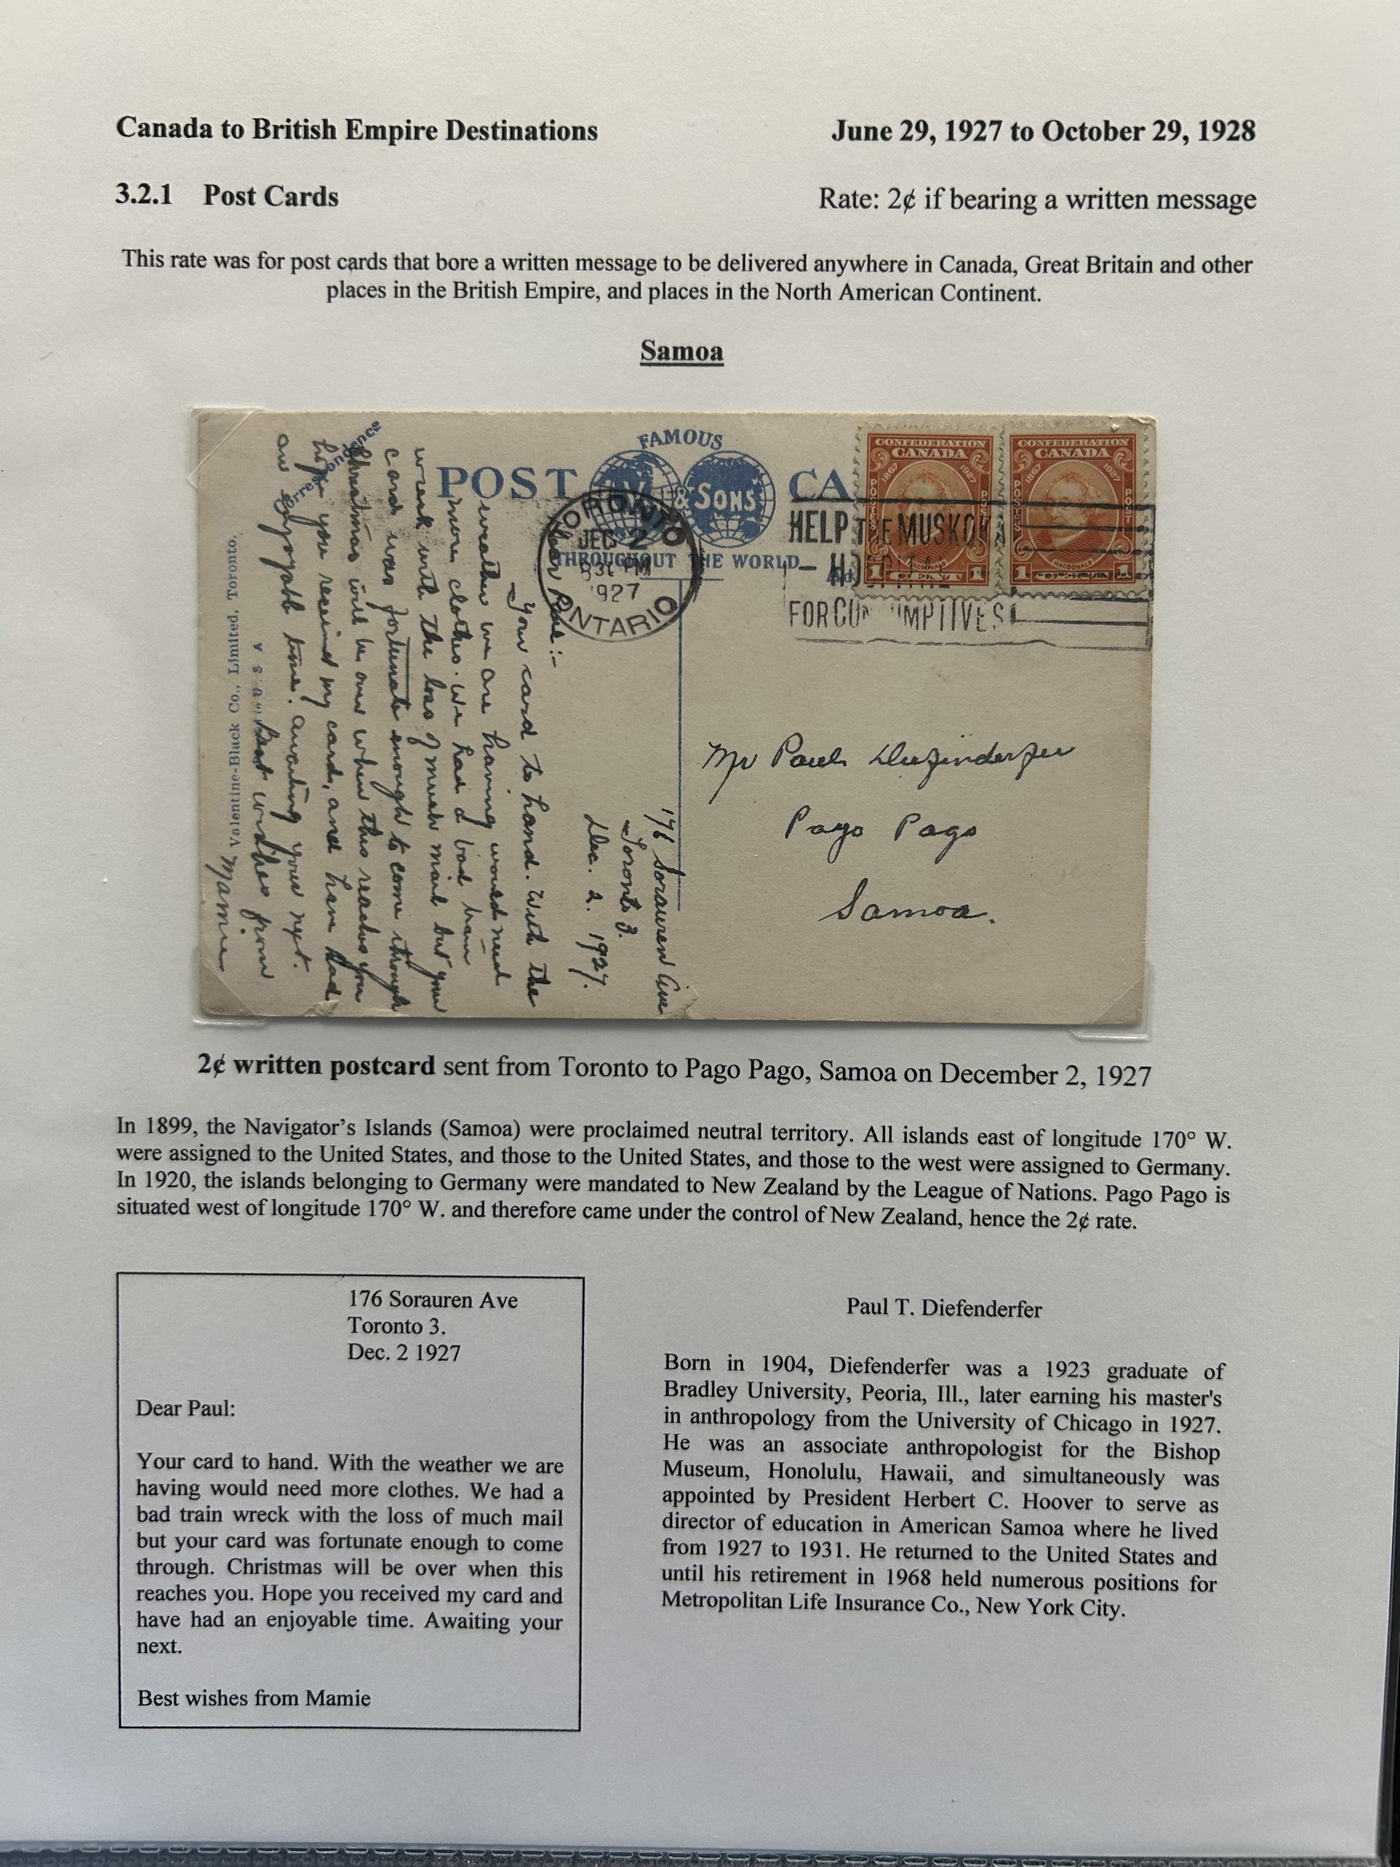 Canada to British Empire Destinations
June 29, 1927 to October 29, 1928
3.2.1 Post Cards
Rate: 2¢ if bearing a written message
This rate was for post cards that bore a written message to be delivered anywhere in Canada, Great Britain and other
places in the British Empire, and places in the North American Continent.
Samoa
POST CA
FAMOUS
& SONS
THROUGHOUT THE WORLD
Correspondence
TORONTO
DEC 2
830 PM
1927
ONTARIO
HELP THE MUSKOK
FOR CON UMPTIVES
CONFEDERATION
CANADA
1867 1927
POSTES
1 CENT 1
MACDONALD
CONFEDERATION
CANADA
1867 1927
POSTES
1 CENT 1
MACDONALD
Valentine-Black Co., Limited, Toronto.
176 Sorauren Ave
Toronto 3.
Dec. 2. 1927.
Dear Paul:-
Your card to hand. With the
weather we are having would need
more clothes. We had a bad train
wreck with the loss of much mail but your
card was fortunate enough to come through
Christmas will be over when this reaches you
hope you received my card, and have had
an enjoyable time. awaiting your next.
Best wishes from
Mamie
Mr Paul Diefenderfer
Pago Pago
Samoa.
2¢ written postcard sent from Toronto to Pago Pago, Samoa on December 2, 1927
In 1899, the Navigator's Islands (Samoa) were proclaimed neutral territory. All islands east of longitude 170° W.
were assigned to the United States, and those to the United States, and those to the west were assigned to Germany.
In 1920, the islands belonging to Germany were mandated to New Zealand by the League of Nations. Pago Pago is
situated west of longitude 170° W. and therefore came under the control of New Zealand, hence the 2¢ rate.
176 Sorauren Ave
Toronto 3.
Dec. 2 1927
Dear Paul:
Your card to hand. With the weather we are
having would need more clothes. We had a
bad train wreck with the loss of much mail
but your card was fortunate enough to come
through. Christmas will be over when this
reaches you. Hope you received my card and
have had an enjoyable time. Awaiting your
next.
Best wishes from Mamie
Paul T. Diefenderfer
Born in 1904, Diefenderfer was a 1923 graduate of
Bradley University, Peoria, Ill., later earning his master's
in anthropology from the University of Chicago in 1927.
He was an associate anthropologist for the Bishop
Museum, Honolulu, Hawaii, and simultaneously was
appointed by President Herbert C. Hoover to serve as
director of education in American Samoa where he lived
from 1927 to 1931. He returned to the United States and
until his retirement in 1968 held numerous positions for
Metropolitan Life Insurance Co., New York City.